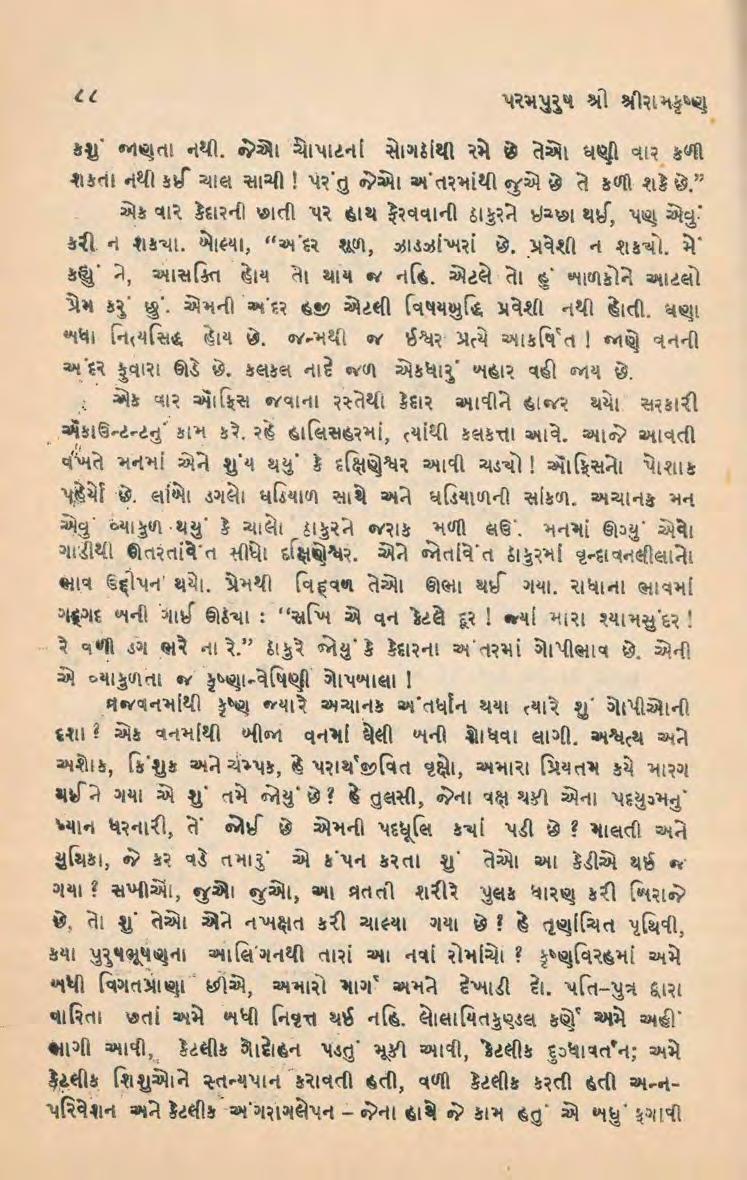 ૮૮ પરમપુરુષ શ્રી શ્રીરામકૃષ્ણ
કશું જાણતા નથી. જેઓ ચોપાટનાં સોગઠાંથી રમે છે તેઓ ઘણી વાર કળી
શકતા નથી કઈ ચાલ સાચી ! પરંતુ જેઓ અંતરમાંથી જુએ છે તે કળી શકે છે.”
એક વાર કેદારની છાતી પર હાથ ફેરવવાની ઠાકુરને ઇચ્છા થઈ, પણ એવું
કરી ન શકયા. બોલ્યા, “અંદર શૂળ, ઝાડઝાંખરાં છે. પ્રવેશી ન શકયો. મેં
કહ્યું ને, આસક્તિ હોય તો થાય જ નહિ. એટલે તો હું બાળકોને આટલો
પ્રેમ કરું છું. એમની અંદર હજી એટલી વિષયબુદ્ધિ પ્રવેશી નથી હોતી. ઘણા
બધા નિત્યસિદ્ધ હોય છે. જન્મથી જ ઈશ્વર પ્રત્યે આકર્ષિત ! જાણે વનની
અંદર ફુવારા ઊડે છે. કલકલ નાદે જળ એકધારું બહાર વહી જાય છે.
એક વાર ઑફિસ જવાના રસ્તેથી કેદાર આવીને હાજર થયો સરકારી
ઍકાઉન્ટન્ટનું કામ કરે. રહે હાલિસહરમાં, ત્યાંથી કલકત્તા આવે. આજે આવતી
વખતે મનમાં એને શુંય થયું કે દક્ષિણેશ્વર આવી ચડયો ! ઑફિસનો પોશાક
પહેર્યો છે. લાંબો ડગલો ઘડિયાળ સાથે અને ઘડિયાળની સાંકળ. અચાનક મન
એવું વ્યાકુળ થયું કે ચાલો ઠાકુરને જરાક મળી લઉં. મનમાં ઊગ્યું એવો
ગાડીથી ઊતરતાંવેંત સીધો દક્ષિણેશ્વર. એને જોતાંવેંત ઠાકુરમાં વૃન્દાવનલીલાનો
ભાવ ઉદ્દીપન થયો. પ્રેમથી વિહ્વળ તેઓ ઊભા થઈ ગયા. રાધાના ભાવમાં
ગદ્ગદ બની ગાઈ ઊઠયા : “સખિ એ વન કેટલે દૂર ! જ્યાં મારા શ્યામસુંદર !
રે વળી ડગ ભરે ના રે.” ઠાકુરે જોયું કે કેદારના અંતરમાં ગોપીભાવ છે. એની
એ વ્યાકુળતા જ કૃષ્ણાન્વેષિણી ગોપબાલા !
વ્રજવનમાંથી કૃષ્ણ જ્યારે અચાનક અંતર્ધાન થયા ત્યારે શું ગોપીઓની
દશા ? એક વનમાંથી બીજા વનમાં ઘેલી બની શોધવા લાગી. અશ્વત્થ અને
અશોક, કિંશુક અને ચંમ્પક, હે પરાર્થજીવિત વૃક્ષો, અમારા પ્રિયતમ કયે મારગ
થઈને ગયા એ શું તમે જોયું છે ? હે તુલસી, જેના વક્ષ થકી એના પદયુગ્મનું
ધ્યાન ધરનારી, તેં જોઈ છે એમની પદધૂલિ કયાં પડી છે ? માલતી અને
યુથિકા, જે કર વડે તમારું એ કંપન કરતા શું તેઓ આ કેડીએ થઈ જ
ગયા ? સખીઓ, જુઓ જુઓ, આ વ્રતતી શરીરે પુલક ધારણ કરી બિરાજે
છે, તો શું તેઓ એને નખક્ષત કરી ચાલ્યા ગયા છે ? હે તૃણાંચિત પૃથિવી,
કયા પુરુષભૂષણના આલિંગનથી તારાં આ નવાં રોમાંચો ? કૃષ્ણવિરહમાં અમે
બધી વિગતપ્રાણા છીએ, અમારો માર્ગ અમને દેખાડી દો. પતિ–પુત્ર દ્વારા
વારિતા છતાં અમે બધી નિવૃત્ત થઈ નહિ. લોલાયિતકુણ્ડલ કર્ણે અમે અહીં
ભાગી આવી, કેટલીક ગોદોહન પડતું મૂકી આવી, કેટલીક દુગ્ધાવર્તન; અમે
કેટલીક શિશુઓને સ્તન્યપાન કરાવતી હતી, વળી કેટલીક કરતી હતી અન્ન-
પરિવેશન અને કેટલીક અંગરાગલેપન – જેના હાથે જે કામ હતું એ બધું ફગાવી